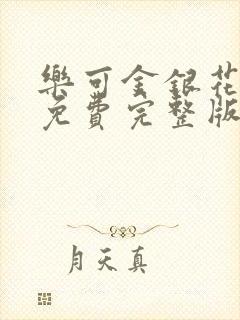 樂可金銀花
免費完整版
月天真